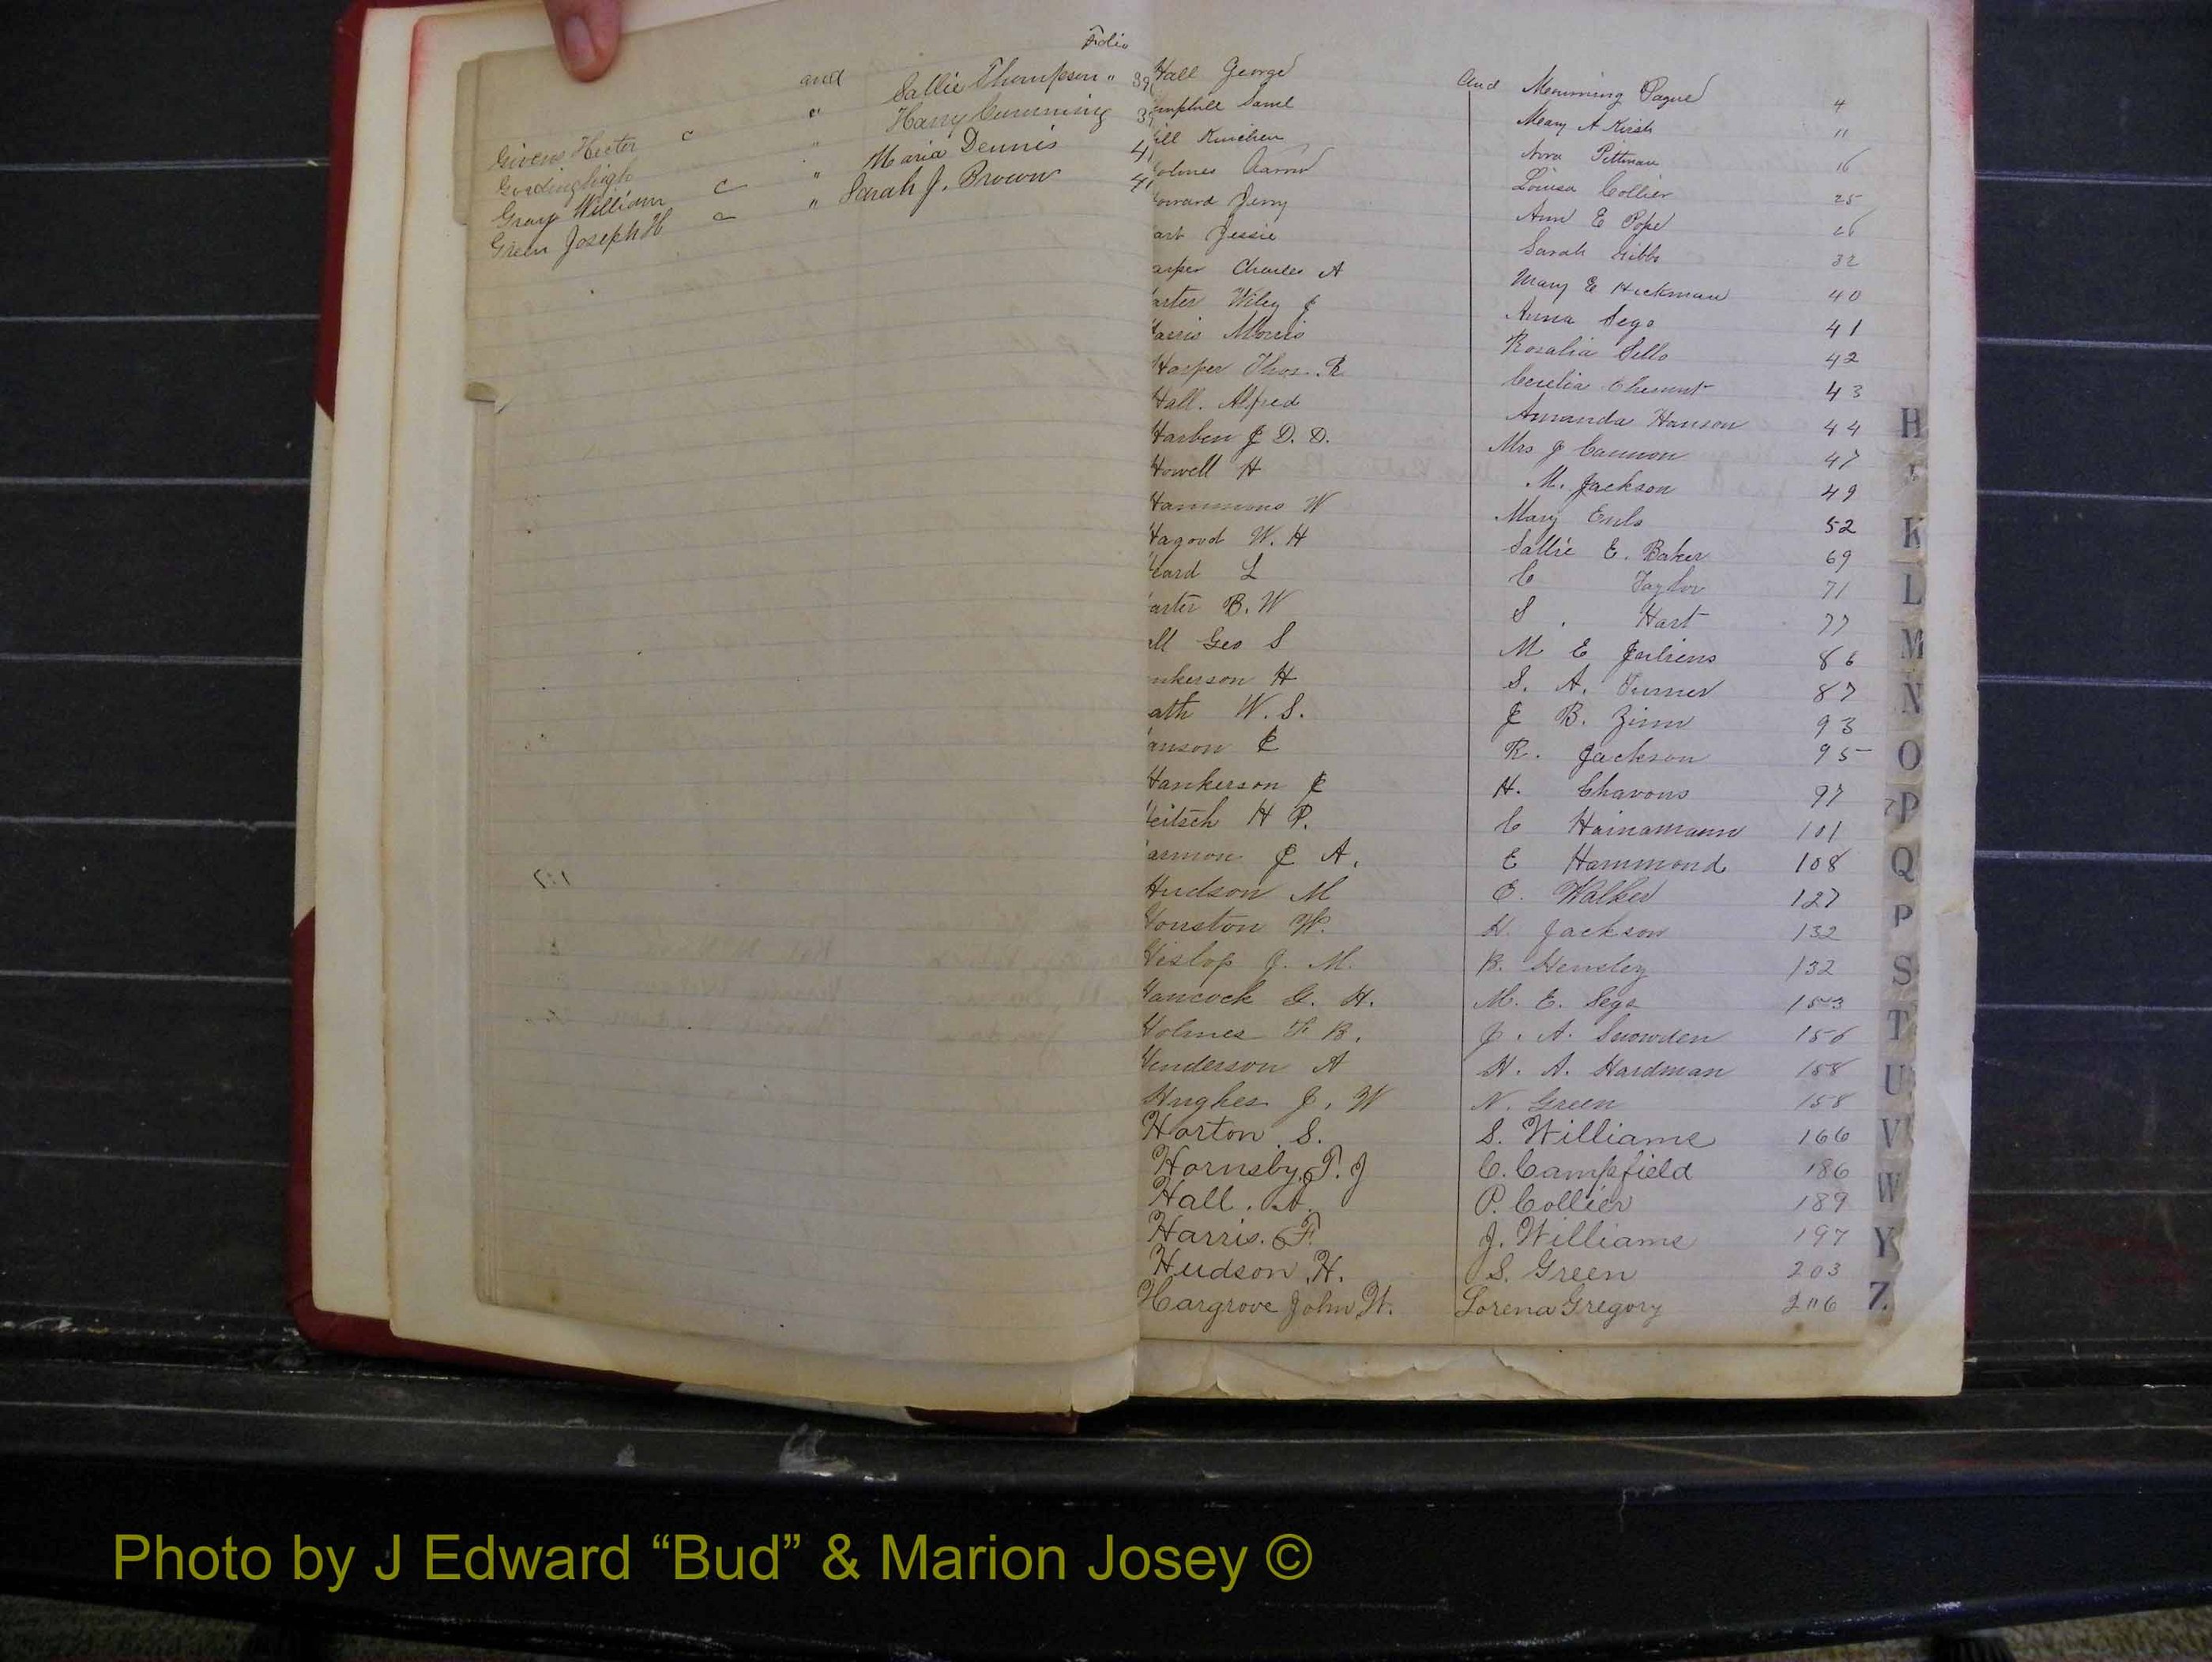 Folio
Givens Hector c and Sallie Thompson " 39
" Harry Cumming
Gray William c " Maria Dennis 41
Green Joseph H c " Sarah J. Brown 41
Hall George and Mourning Pague 4
Saml Mary A Kirsh 11
ill Kinchen Nora Pittman 16
olmes Aaron Louisa Collier 25
oward Jerry Ann E Pope 26
art Jessie Sarah Gibbs 32
arper Charles A Mary E Hickman 40
arter Wiley J Anna Sego 41
arris Morris Rosalia Sells 42
Harper Thos. R Cecelia 43
Hall. Alfred Amanda Hanson 44
Harben J D. D. Mrs J Cannon 47
Howell H M. Jackson 49
Hammons W Mary 52
Hagood W. H Sallie E. Baker 69
eard L C Taylor 71
arter B. W S. Hart 77
all Geo S M E Jenkins 86
nkerson H S. A. Turner 87
ath W. S. J B. Zinn 93
anson J R. Jackson 95
Hankerson J H. Chavous 97
eitsch H P. C Hainamann 101
armon J A. E Hammond 108
Hudson M E. Walker 127
Houston W. H. Jackson 132
Hislop J. M. B. Hensley 132
Hancock G. H. M. E. Sego 153
Holmes F B. J. A. Snowden 156
Henderson A H. A. Hardman 158
Hughes J. W N. Green 158
Horton S. S. Williams 166
Hornsby, T. J C. Campfield 186
Hall. A. P. Collier 189
Harris. F. J. Williams 197
Hudson. H. S. Green 203
Hargrove John W. Lorena Gregory 206
H
K
L
M
N
O
P
Q
P
S
T
U
V
W
Y
Z
Photo by J Edward “Bud” & Marion Josey ©